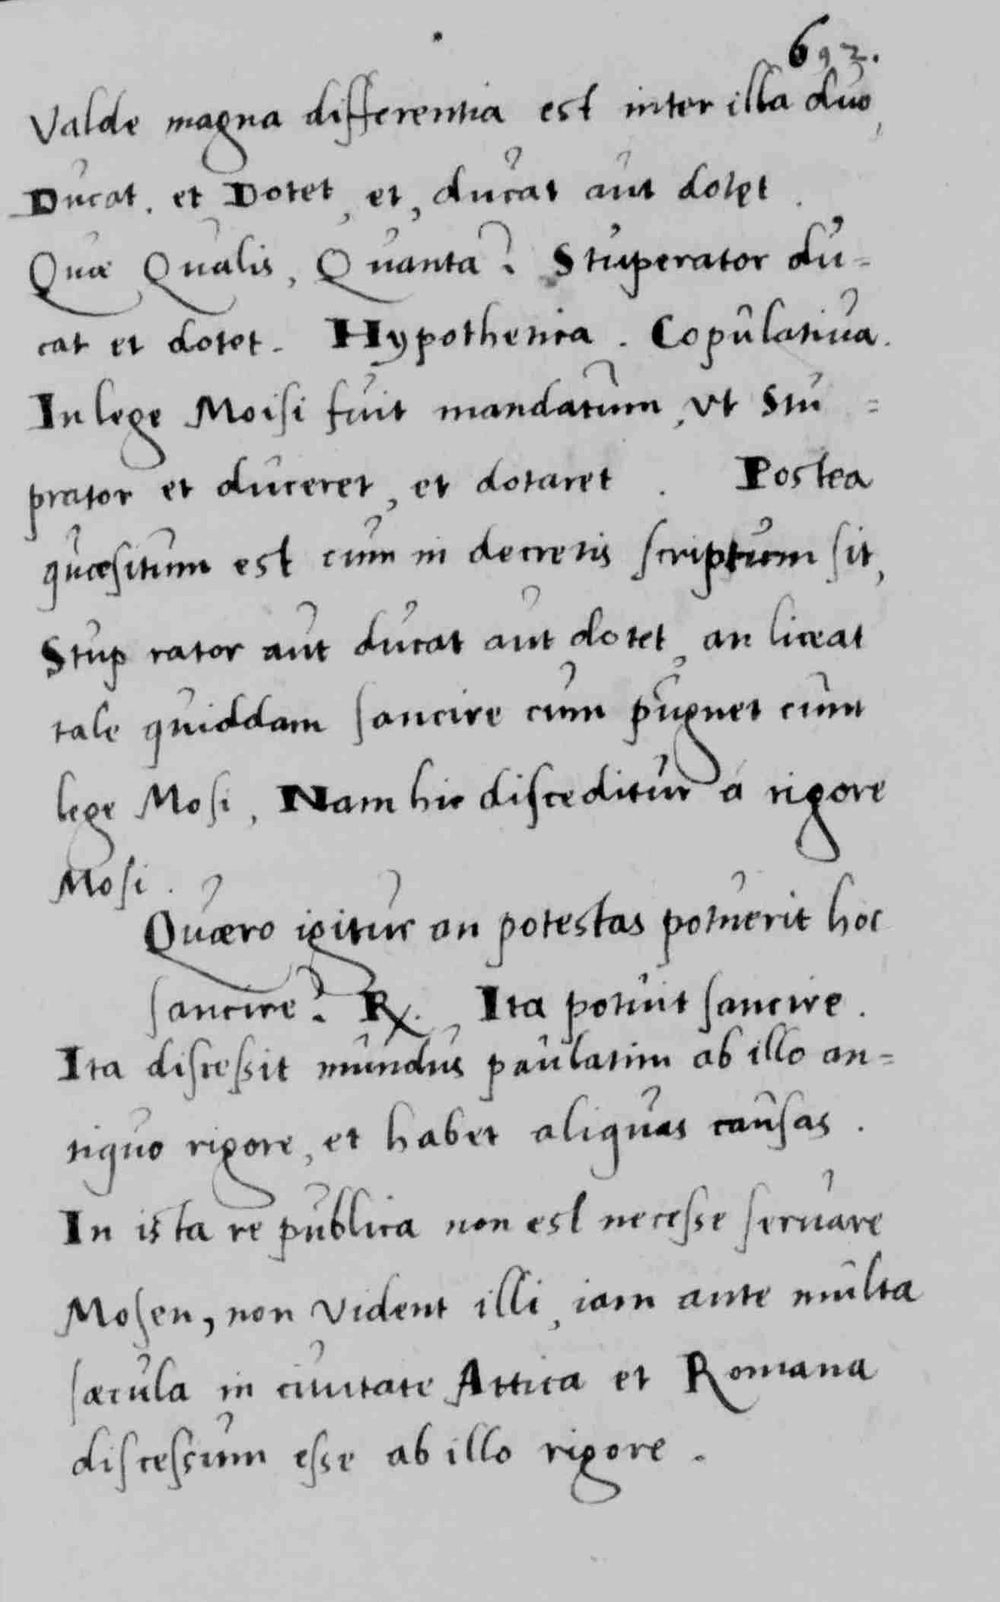 692.
Valde magna differentia est inter illa duo,
Ducat. et Dotet, et, ducat aut dotet.
Quæ Qualis, Quanta? Stuperator du=
cat et dotet. Hypothetica. Copulativa.
In lege Moisi fuit mandatum, vt Stu=
prator et duceret, et dotaret. Postea
quæsitum est cum in decretis scriptum sit,
Stuprator aut ducat aut dotet, an liceat
tale quiddam sancire cum pugnet cum
lege Mosi, Nam hic disceditur á rigore
Mosi.
Quæro igitur an potestas potuerit hoc
sancire? R. Ita potuit sancire.
Ita discessit mundus paulatim ab illo an=
tiquo rigore, et habet aliquas causas.
In ista re publica non est necesse seruare
Mosen, non vident illi, iam ante multa
sæcula in ciuitate Attica et Romana
discessum esse ab illo rigore.